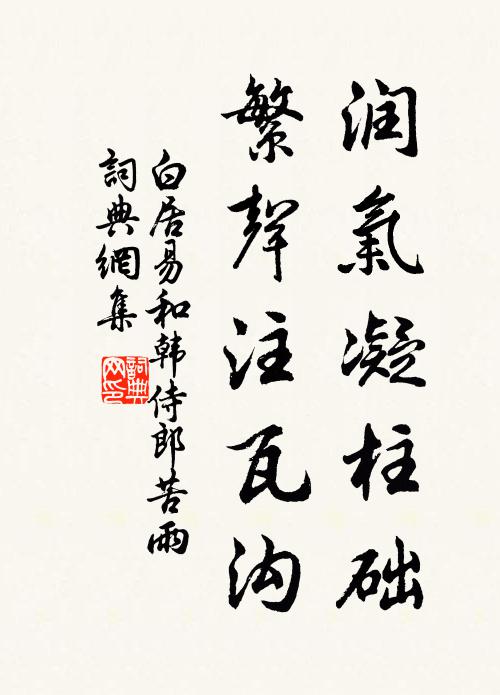 润氣凝柱础
繁聲注瓦沟
白居易和韩侍郎苦雨
詞典網集
詞典网印